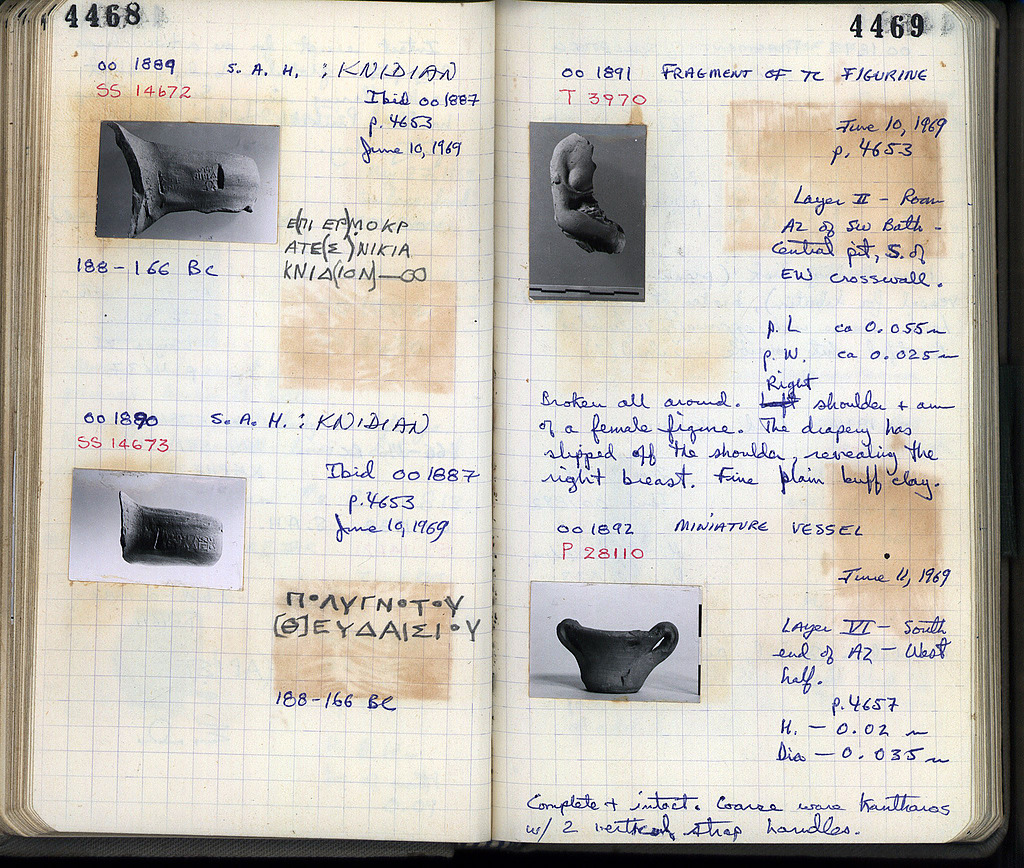 4468
OO 1889 S. A. H. : KNIDIAN
SS 14672
Ibid OO 1887
p. 4653
June 10, 1969
Ε(ΠΙ ΕΡ)ΜΟΚΡ
ΑΤΕ(Σ) ΝΙΚΙΑ
ΚΝΙΔ(ΙΟΝ)
188-166 BC
OO 1890 S. A. H. : KNIDIAN
SS 14673
Ibid OO 1887
p. 4653
June 10, 1969
ΠΟΛΥΓΝΟΤΟΥ
[Θ]ΕΥΔΑΙΣΙΟΥ
188-166 BC
4469
OO 1891 FRAGMENT OF TC FIGURINE
T 3970
June 10, 1969
p. 4653
Layer II - Room
A2 of SW Bath -
Central pit, S. of
EW crosswall.
p. L ca 0.055 m
p. W. ca 0.025 m
Right
Broken all around. Left shoulder + arm
of a female figure. The drapery has
slipped off the shoulder, revealing the
right breast. Fine plain buff clay.
OO 1892 MINIATURE VESSEL
P 28110
June 11, 1969
Layer VI - South
end of A2 - West
half.
p. 4657
H. - 0.02 m
Dia - 0.035 m
Complete + intact. Coarse ware kantharos
w/ 2 vertical strap handles.